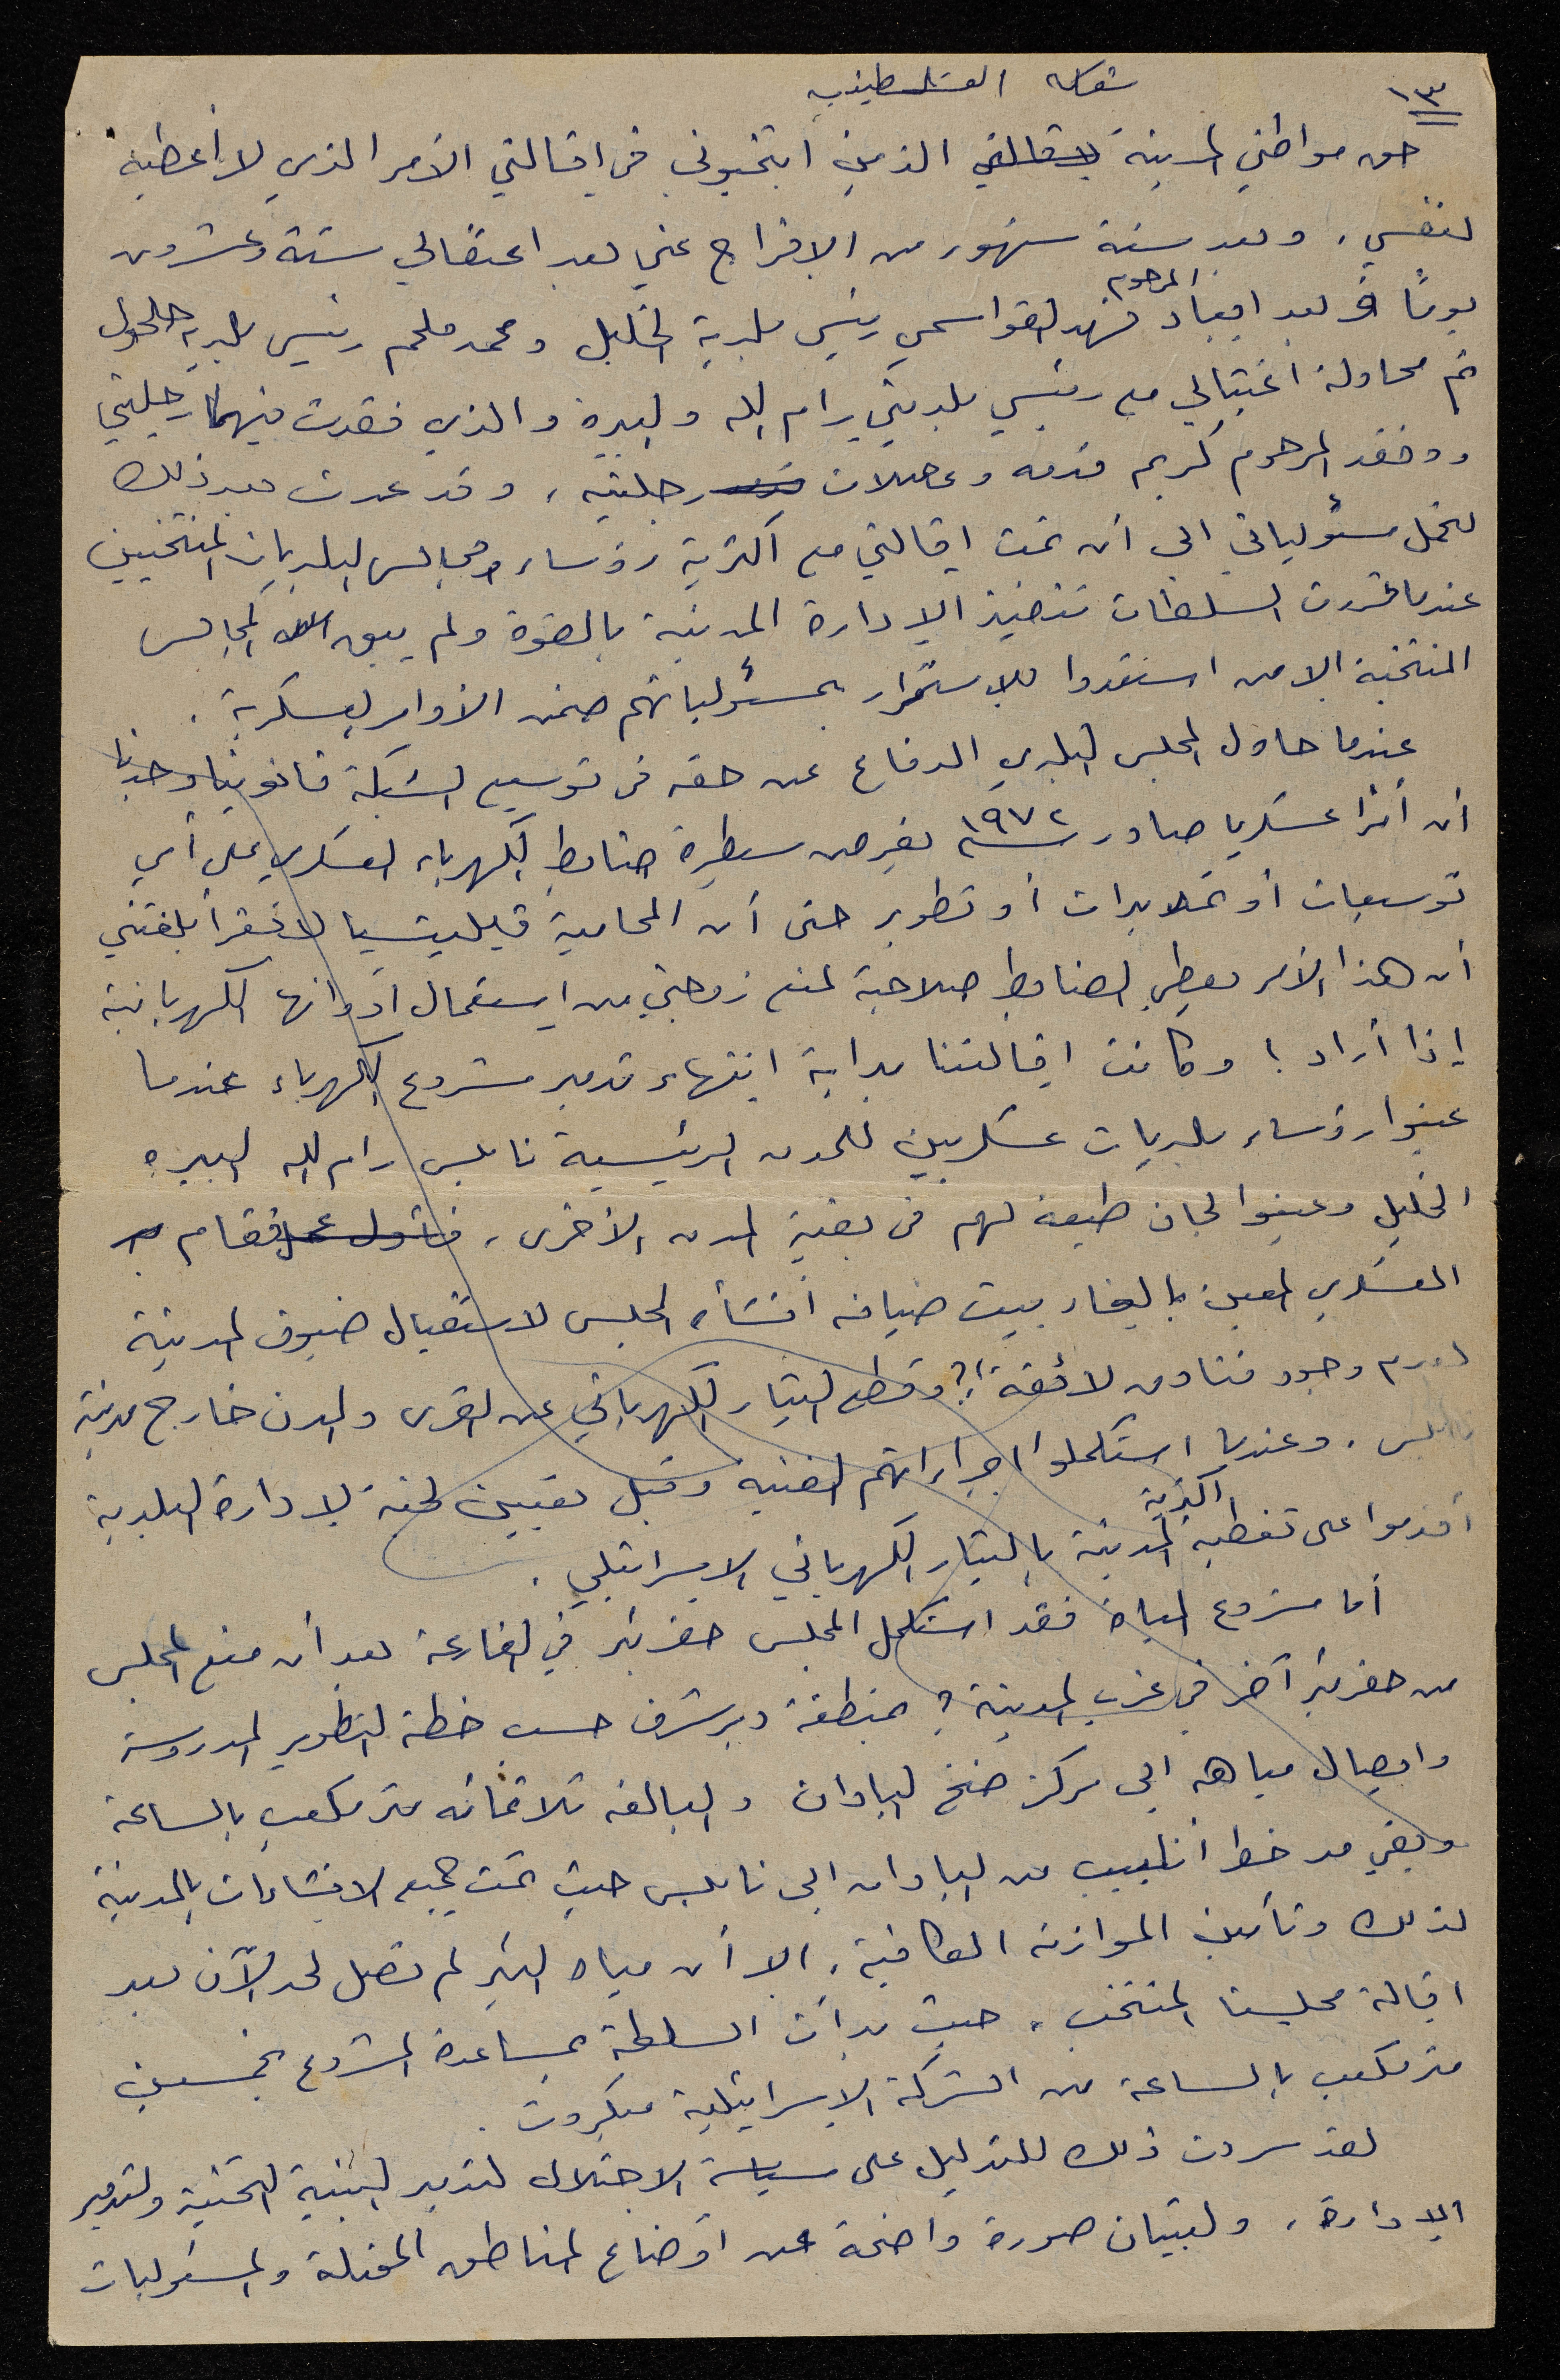 ١٣
حق مواطني المدينة الذين انتخبوني في إقالتي الأمر الذي لا أعطيه
لنفسي. وبعد ستة شهور من الإفراج عني بعد اعتقالي ستة وعشرون
يوماً وبعد ابعاد المرحوم فهد القواسمي رئيس بلدية الخليل ومحمد ملحم رئيس بلدية حلحول
تم محاولة اغتيالي مع رئيسي بلديتي رام الله والبيرة والذي فقدت فيها رجليتي
وفقد المرحوم كريم قدمه وعضلات رجليه، وقد عدت بعد ذلك
لتحمل مسئولياتي الى أن تمت إقالتي مع أكثرية رؤساء ومجالس البلديات المنتخبين
عندما قررت السلطات تنفيذ الإدارة المدنية بالقوة ولم يبق المجالس
المنتخبة الا من استعدوا للاستمرار بمسئولياتهم ضمن الأوامر العسكرية.
عندما حاول المجلس البلدي الدفاع عن حقه في توسيع الشبكة قانونيا وجدنا
أن أمرا عسكريا صادر سنة ١٩٧٢ بفرض سيطرة ضابط الكهرباء العسكري على أي
توسيعات أو تمديدات أو تطوير حتى أن المحامية فيليتسيا لانغر أبلغتني
أن هذا الأمر يعطي الضابط صلاحية لمنع زوجتي من استعمال أدواتها الكهربائية
إذا أراد! وكانت إقالتنا بداية انتهاء تدمير مشروع الكهرباء عندما
عينوا رؤساء بلديات عسكريين للمدن الرئيسية نابلس رام الله البيره
الخليل وعينوا لجان طيعة لهم في بقية المدن الأخرى، فقام
العسكري المعين بالغاء بيت ضيافه أنشأه المجلس لاستقبال ضيوف المدينة
لعدم وجود فنادق لائقة!؟ وقطع التيار الكهربائي عن القرى والمدن خارج مدينة
نابلس. وعندما استكملوا اجراءاتهم الفنيه وقبل تعيين لجنة لادارة البلدية
أقدموا على تغطية أكثرية المدينة بالتيار الكهربائي الاسرائيلي.
أما مشروع المياه فقد استكمل المجلس حفر بئر في الفارعة بعد أن منع المجلس
من حفر بئر آخر في غرب المدينة؟ بمنطقة دير شرف حسب خطة التطوير المدروسة
وايصال مياهه الى مركز ضخ البادان والبالغه ثلاثمائه متر مكعب بالساعة
وبقي مد خط أنابيب من البادان الى نابلس حيث تمت جميع الانشاءات بالمدينة
لذلك وتأمين الموازنه الكافية. الا أن مياه البئر لم تصل لحد الآن بعد
اقالة مجلسنا المنتخب. حيث بدأت السلطة بمساعدة المشروع بخمسين
متر مكعب بالساعة من الشركة الاسرائيلية ميكروت.
لقد سردت ذلك للتدليل على سياسة الاحتلال لتدمير البنية التحتية ولتدمير
الإدارة، ولتبيان صورة واضحة عن أوضاع المناطق المحتلة والمسئوليات